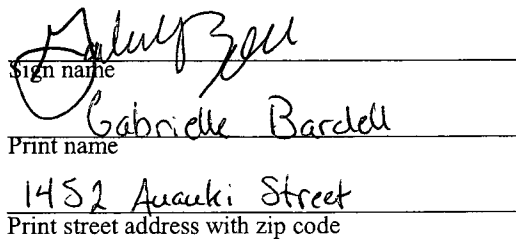 Sign name
Gabrielle Bardell
Print name
1452 Auauki Street
Print street address with zip code